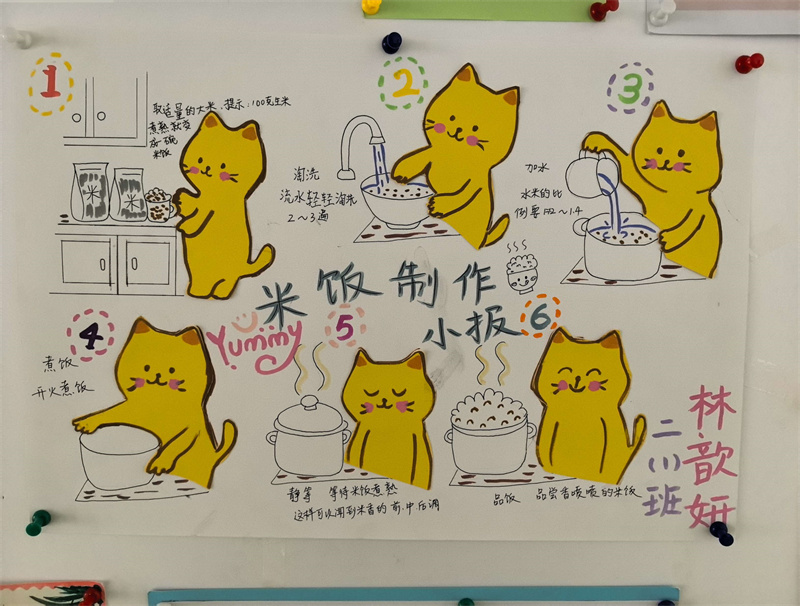 1
取适量的大米,提示:100克生米
煮熟就变
成一碗
米饭
米
米
2
淘洗
流水轻轻淘洗
2～3遍
3
加水
水米的比
例要1:1.2～1.4
米饭制作
小报
Yummy
4
煮饭
开火煮饭
5
静等 等待米饭煮熟
这样可以闻到米香的前.中.后调
6
品饭 品尝香喷喷的米饭
二(1)班
林歆妍